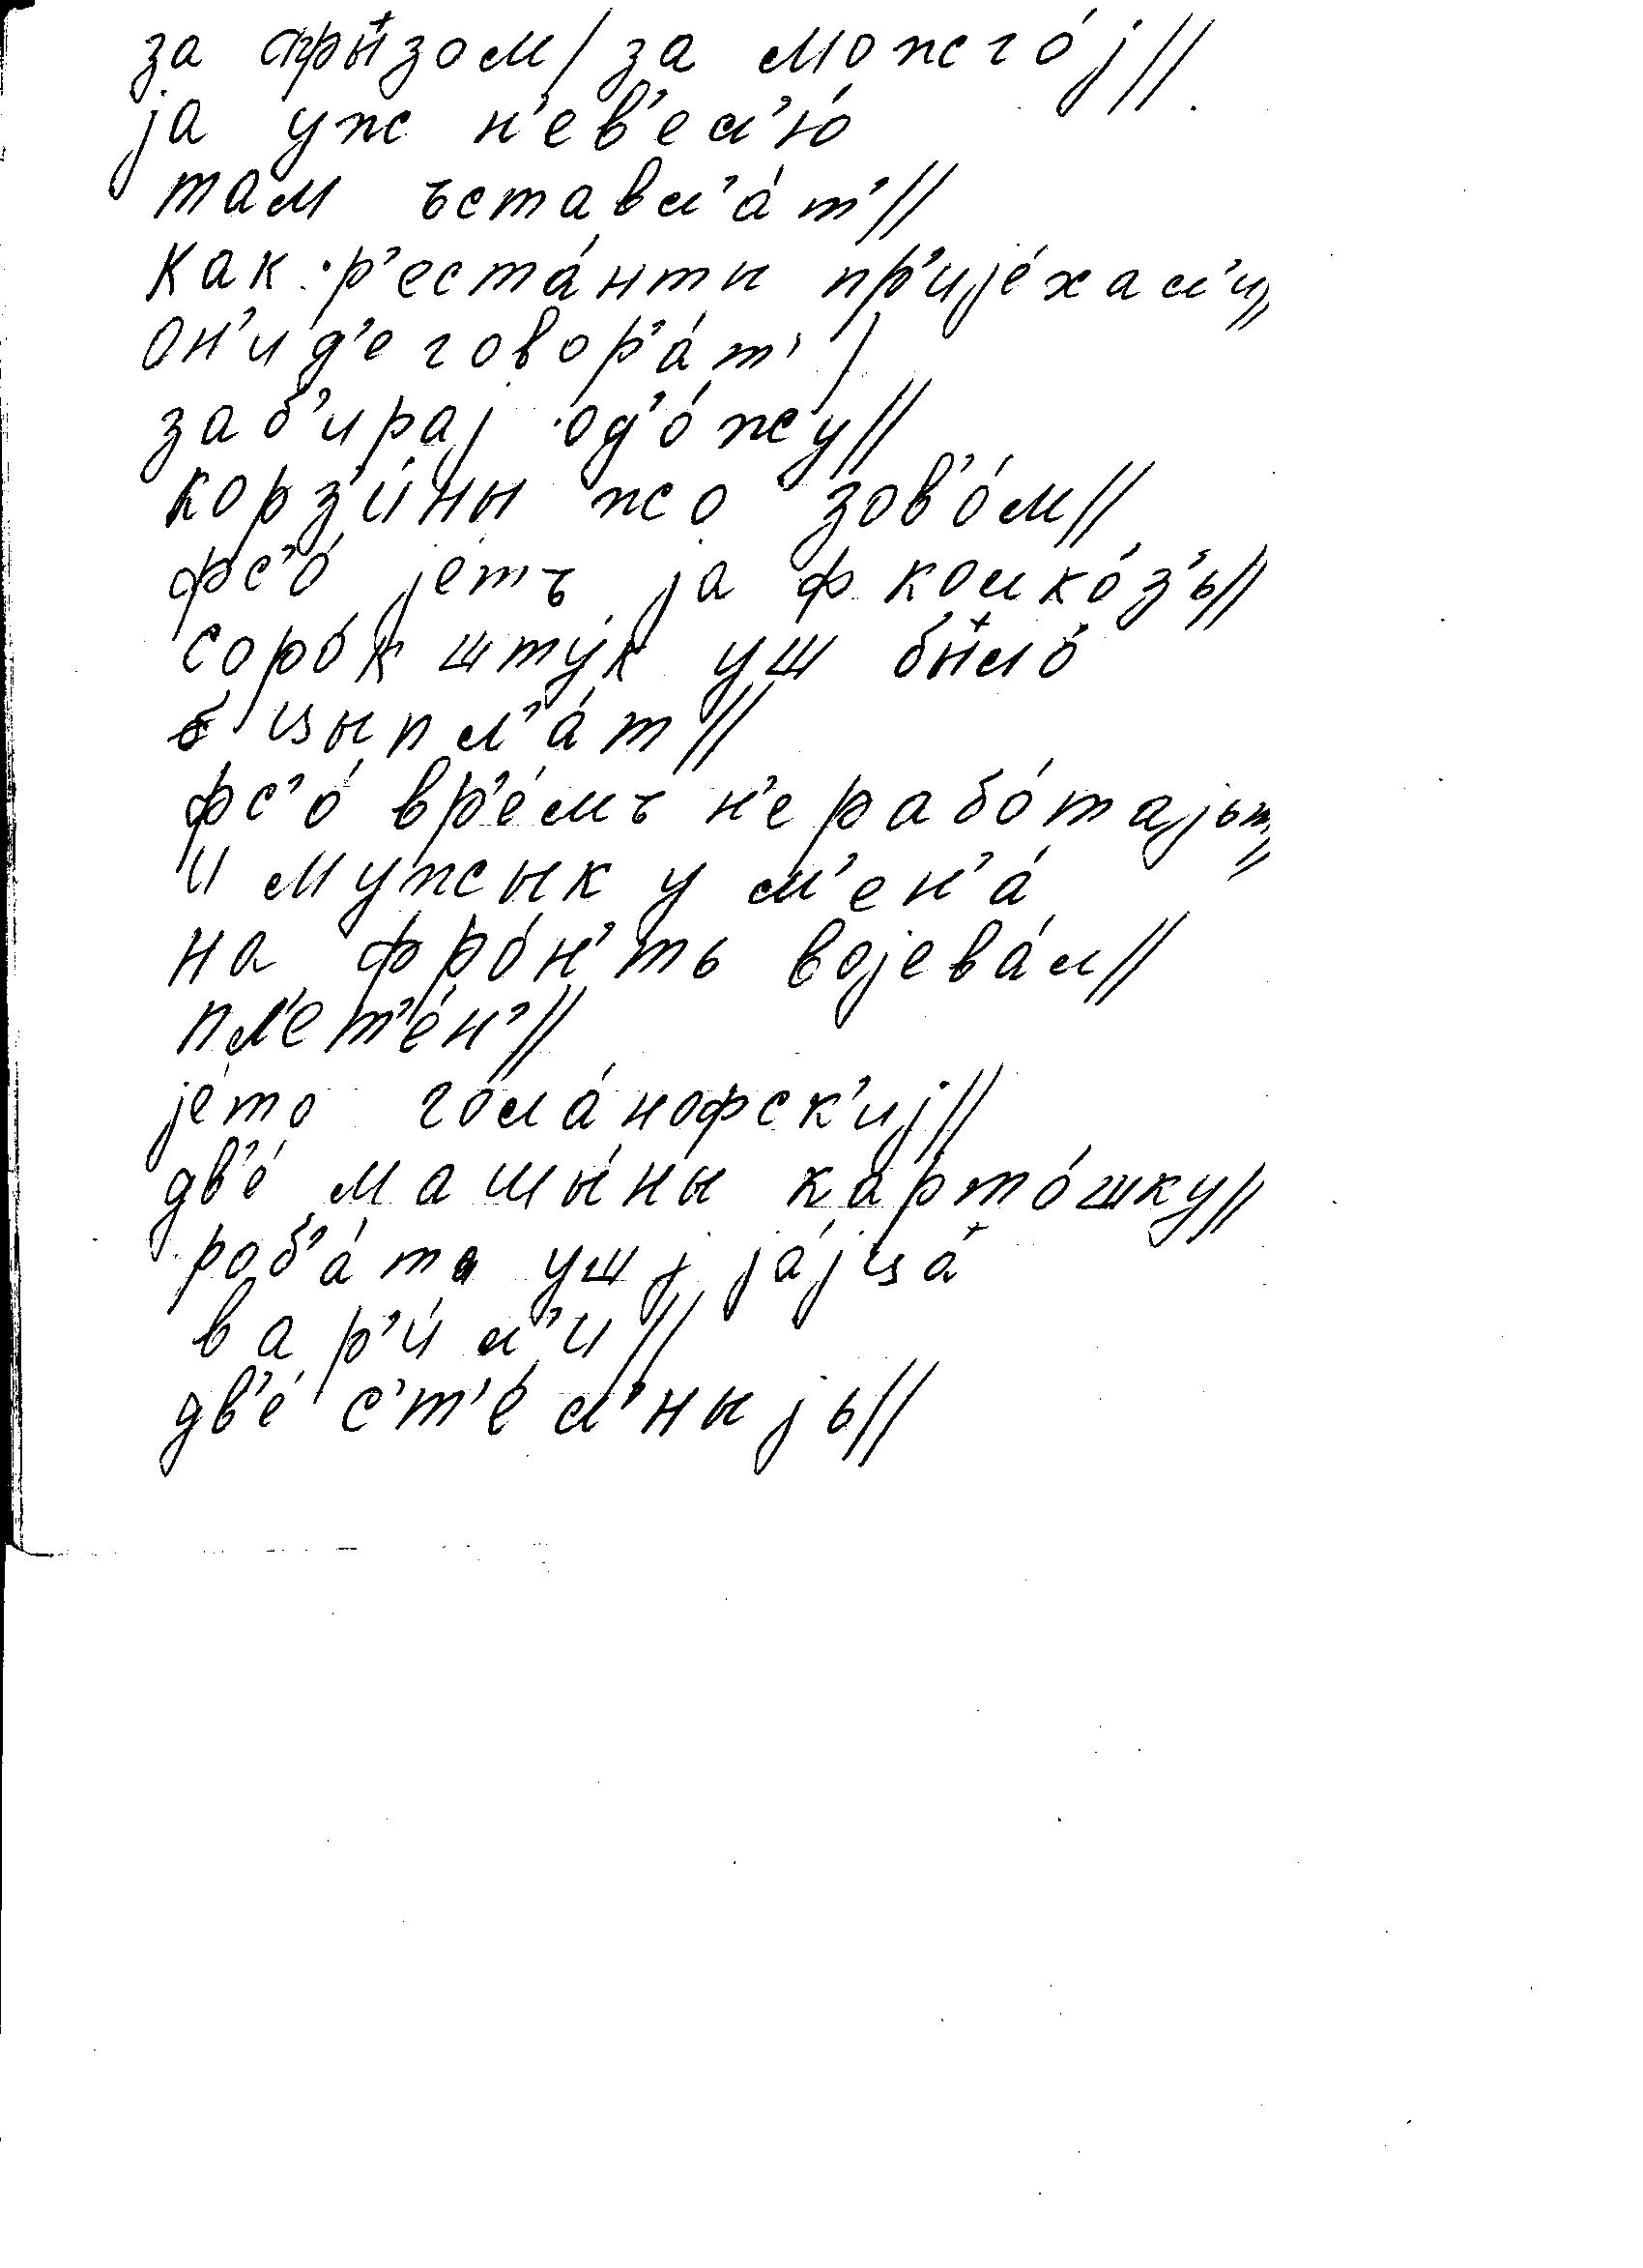 за пры́зом/ заможго́j//
jа уж н'ев'ел'ю́
там ъставл'а́т'//
как р'еста́нты пр'иjе́хал'и//
он'и д'е говор'а́т'/
заб'ираj од'о́жу//
корз'и́ны жо зов'о́м//
фс'о́ jетъ jа ф колхо́з'ь//
соро́к шту́к уш бы́ло́
цыпл'а́т//
фс'о́ вр'е́мъ н'е рабо́таjьт//
и мужык у м'ен'а́
на фро́н'ть воjева́л//
пл'ет'е́н'//
jе́то гола́нофск'иj//
дв'е́ машы́ны карто́шку//
роб'а́та уш jа́jца́
вар'и́л'и//
дв'е́ с'т'е́л'ныjь//